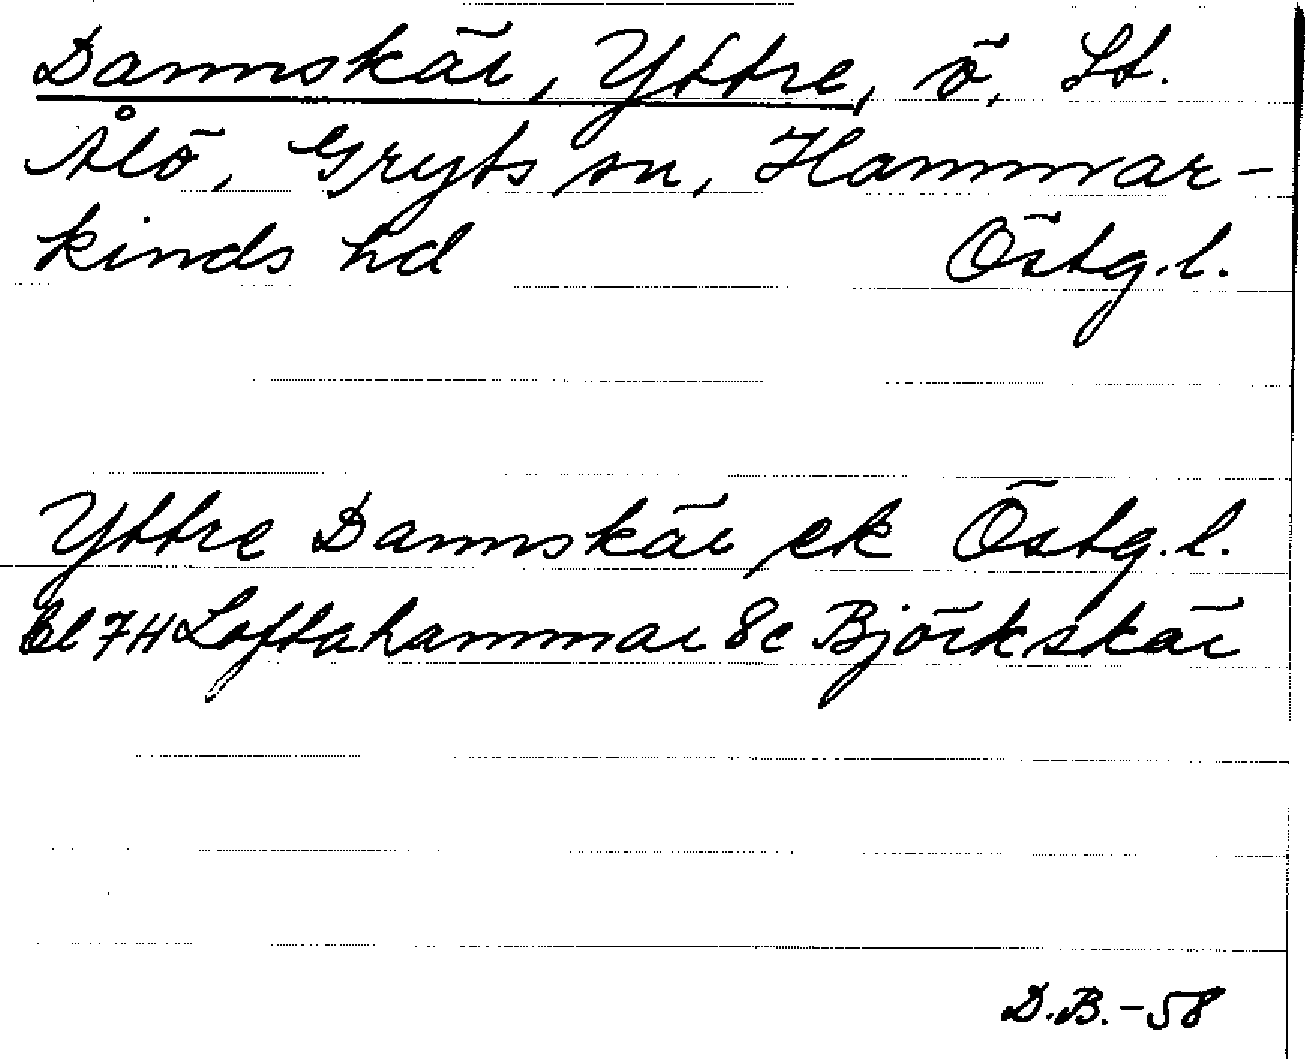 Dannskär, Yttre, ö, St.
Ålö, Gryts sn, Hammar-
kinds hd Östg.l.
Yttre Dannskär ek Östg.l.
Bl 7H Loftahammar 8c Björkskär
D.B.-58